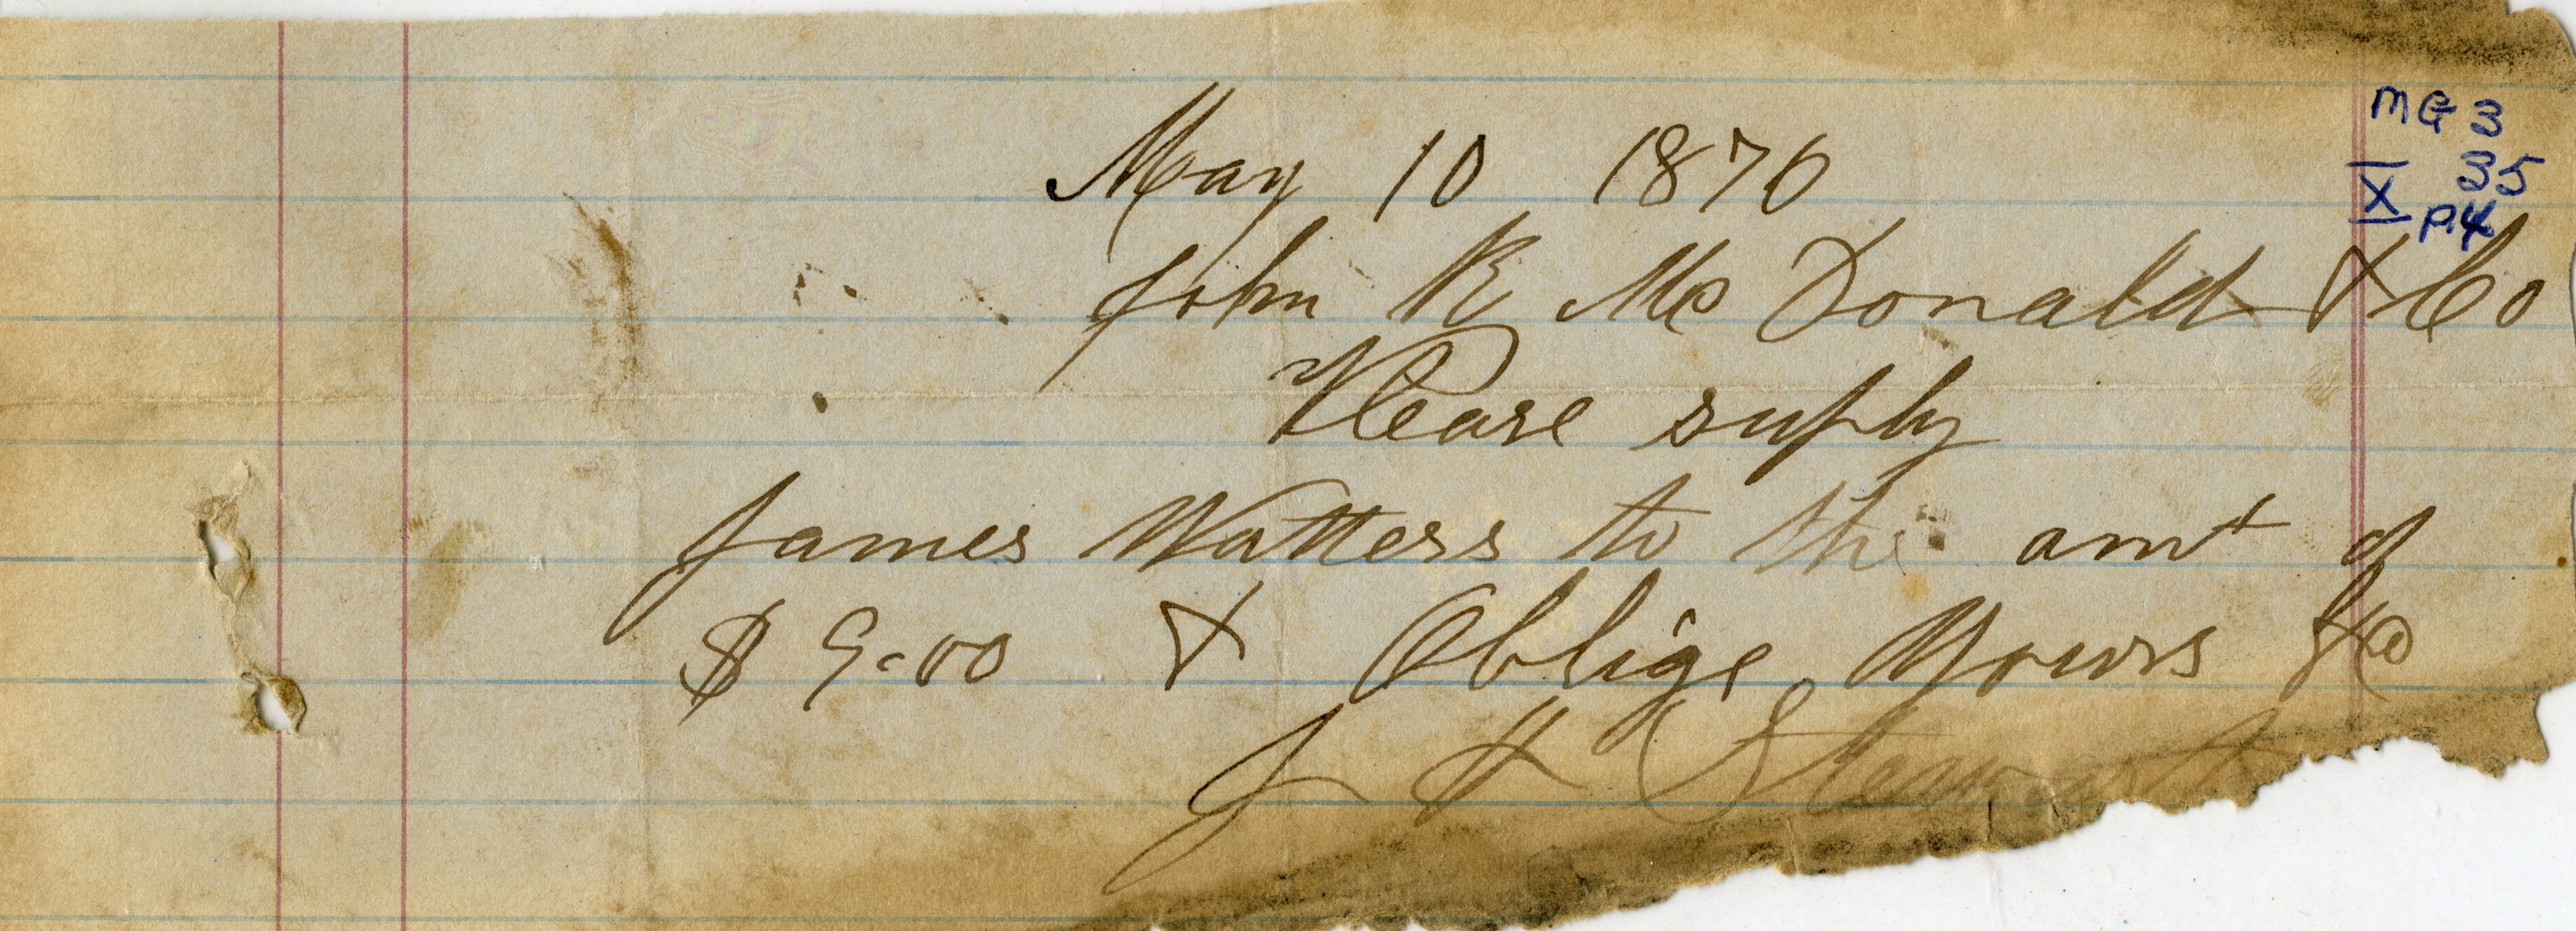 MG 3
35
X P4
May 10 1876
John R McDonald & Co
Please suply
James Watters to the amt of
$ 9-00 & Oblige Yours &c
J H Stewart